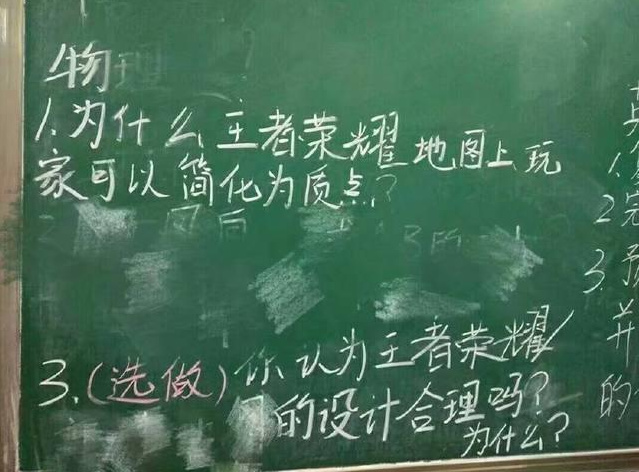 物理
1.为什么王者荣耀地图上玩
家可以简化为质点?
3.(选做)你认为王者荣耀
的设计合理吗?
为什么?
1.
2.完
3.预
并
的